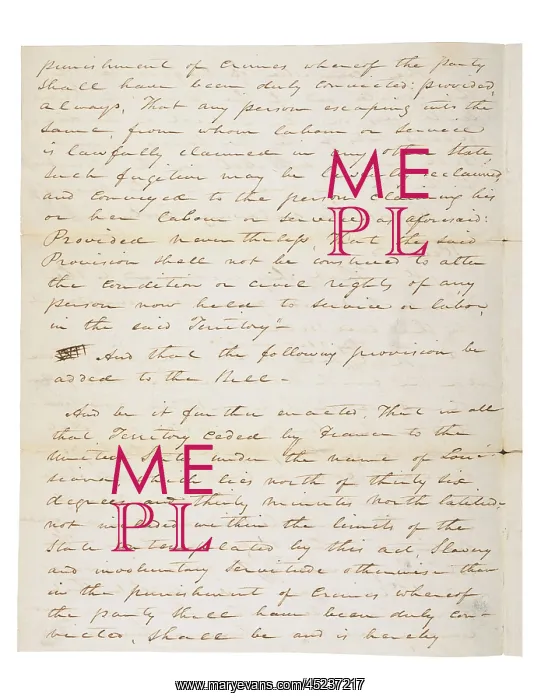 punishment of Crimes whereof the party
shall have been duly convicted: provided,
always, That any person escaping into the
same, from whom labour or service
is lawfully claimed in any other State
such fugitive may be lawfully reclaimed
and conveyed to the person claiming his
or her labour or service as aforesaid:
Provided nevertheless, That the said
Provision shall not be construed to alter
the condition or civil rights of any
person now held to service or labor,
in the said Territory"-
And that the following provision be
added to the Bill -
And be it further enacted, That in all
that Territory ceded by France to the
United States under the name of Loui-
siana, which lies north of thirty six
degrees and thirty minutes North latitude
not included within the limits of the
State contemplated by this act, Slavery
and involuntary servitude otherwise than
in the punishment of Crimes whereof
the party shall have been duly con-
victed, Shall be and is hereby
ME
PL
ME
PL
www.maryevans.com/45237217